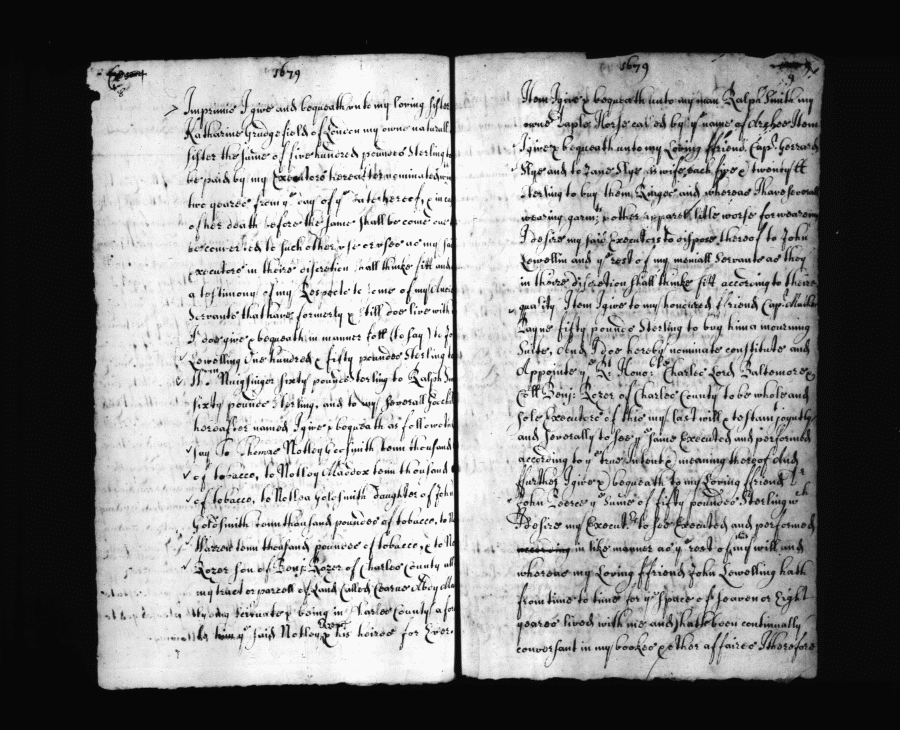 1679
8
Imprimis I give and bequeath unto my loving sister
Katharine Grudgefield of London my owne naturall
sister the sume of five hundred pounds Sterling to
be paid by my Executors hereafter nominated
two yeares from yᵉ day of yᵉ date hereof, & in case
of her death before the same shall be come due
be converted to such other use or uses as my said
Executors in theire discretion shall thinke fitt and
a testimony of my Respects to some of my
Servants that have formerly & still doe live with
I doe give & bequeath in manner foll (to say) to
Lewelling One hundred & fifty pounds Sterling to
Wᵐ Nuigsinger sixty pounds sterling to Ralph
sixty pounds Sterling, and to my severall
hereafter named I give & bequeath as followeth
say To Thomas Notley Goldsmith tenn thousand
of tobacco, to Notley Maddox tenn thousand
of tobacco, to Notlea Goldsmith daughter of John
Goldsmith tenn thousand pounds of tobacco, to
Warren tenn thousand pounds of tobacco, & to
Rozer son of Benj: Rozer of Charles County
my tract or parcell of Land Called
scituate & being in Charles County
yᵉ said Notley & his heires for Ever
1679
9
Item I give & bequeath unto my man Ralph Smith my
owne Saple Horse called by yᵉ name of Item
I give & bequeath unto my Loving ffriend Capᵗ: Gerrard
Slye and to Jane Slye his wife each five & twenty ll
Sterling to buy them Ringes and whereas I have severall
wearing garmᵗˢ & other apparell little worse for wearing
I desire my said Executors to dispose thereof to John
Lewellin and yᵉ rest of my meniall Servants as they
in theire discretion shall thinke fitt according to theire
quality. Item I give to my honoured ffriend Capᵗ
Layne fifty pounds Sterling to buy him a mourning
Suite, And I doe hereby nominate constitute and
Appointe yᵉ Rᵗ Honoᵇˡᵉ: Charles Lord Baltemore &
Coll Benj: Rozer of Charles County to be whole and
sole Executors of this my last will, to stand joyntly
and severally to see yᵉ same Executed and performed
according to yᵉ true Intent & meaning thereof And
further I give & bequeath to my Loving ffriend
John yᵉ sume of fifty pounds Sterling wᶜʰ
I desire my Executʳˢ to see Executed and performed
in like manner as yᵉ rest of my will and
whereas my Loving ffriend John Lewelling hath
from time to time for yᵉ space of seaven or Eight
yeares lived with me and hath been continually
conversant in my bookes & other affaires I therefore